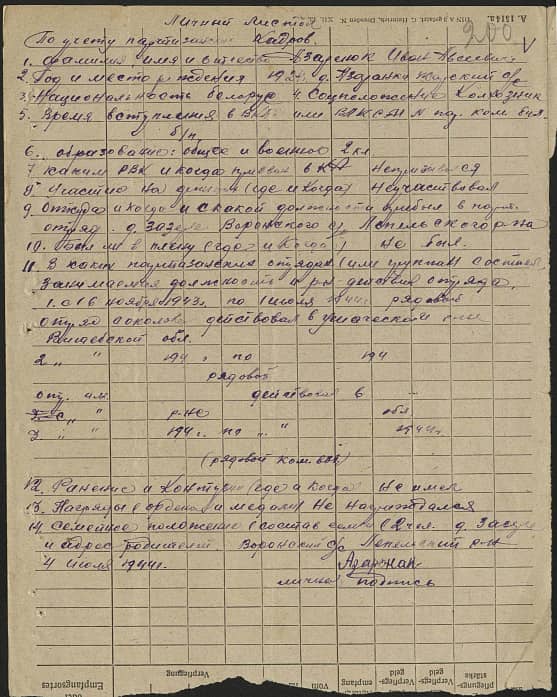 Личный листок
По учету партизанских Кадров.
1. Фамилия имя и отчество Азаронок Иван
2. Год и место рождения 192 г. д.
3. Национальность белорус 4. Соцположение Колхозник
5. Время вступления в ВКП или ВЛКСМ N пар. ком. бил.
б/п
6. образование: общее и военное 2 кл
7. каким РВК и когда призван в КА Непризывался
8. Участие на фронте (где и Когда) Неучаствовал
9. Откуда и когда и с какой должности прибыл в парт.
отряд. д. Воронского с/с Лепельского р-на
10. был ли в плену (где и Когда) Не был.
11. В каких партизанских отрядах (или группах) состоял
занимаемая должность и р-н действия отряда.
1. с 16 ноября 1943 г. по 1 июля 1944 г. рядовой
отряд соколова действовал в ушаческом
Витебской обл.
2 „ „ 194 г по 194
рядовой
отр. им. действовал в
„ р-не обл
3 „ „ 194 г. по „ „ 1944 г.
(рядовой ком. взв)
12. Ранение и Контузии (где и когда Не имел
13. Награды (ордена и медали) Не Награждался
14. Семейное положение (состав семьи 2 чел. д.
и адрес родителей. Воронский с/с Лепельский р-н
4 июля 1944 г.
личная подпись
200
V
A. 1514a.
Empfangsortes
oder
Verpflegung
vom
empfang
Verpfleg-
geld
Verpfleg-
geld
pflegungs-
stärke